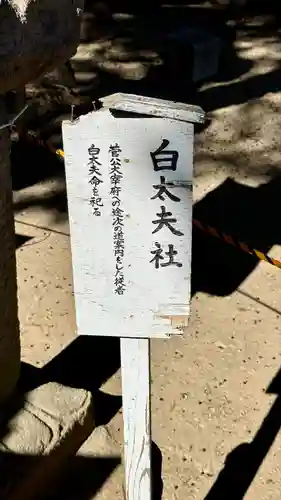 白太夫社
菅公太宰府への途次の道案内をした従者
白太夫命を祀る